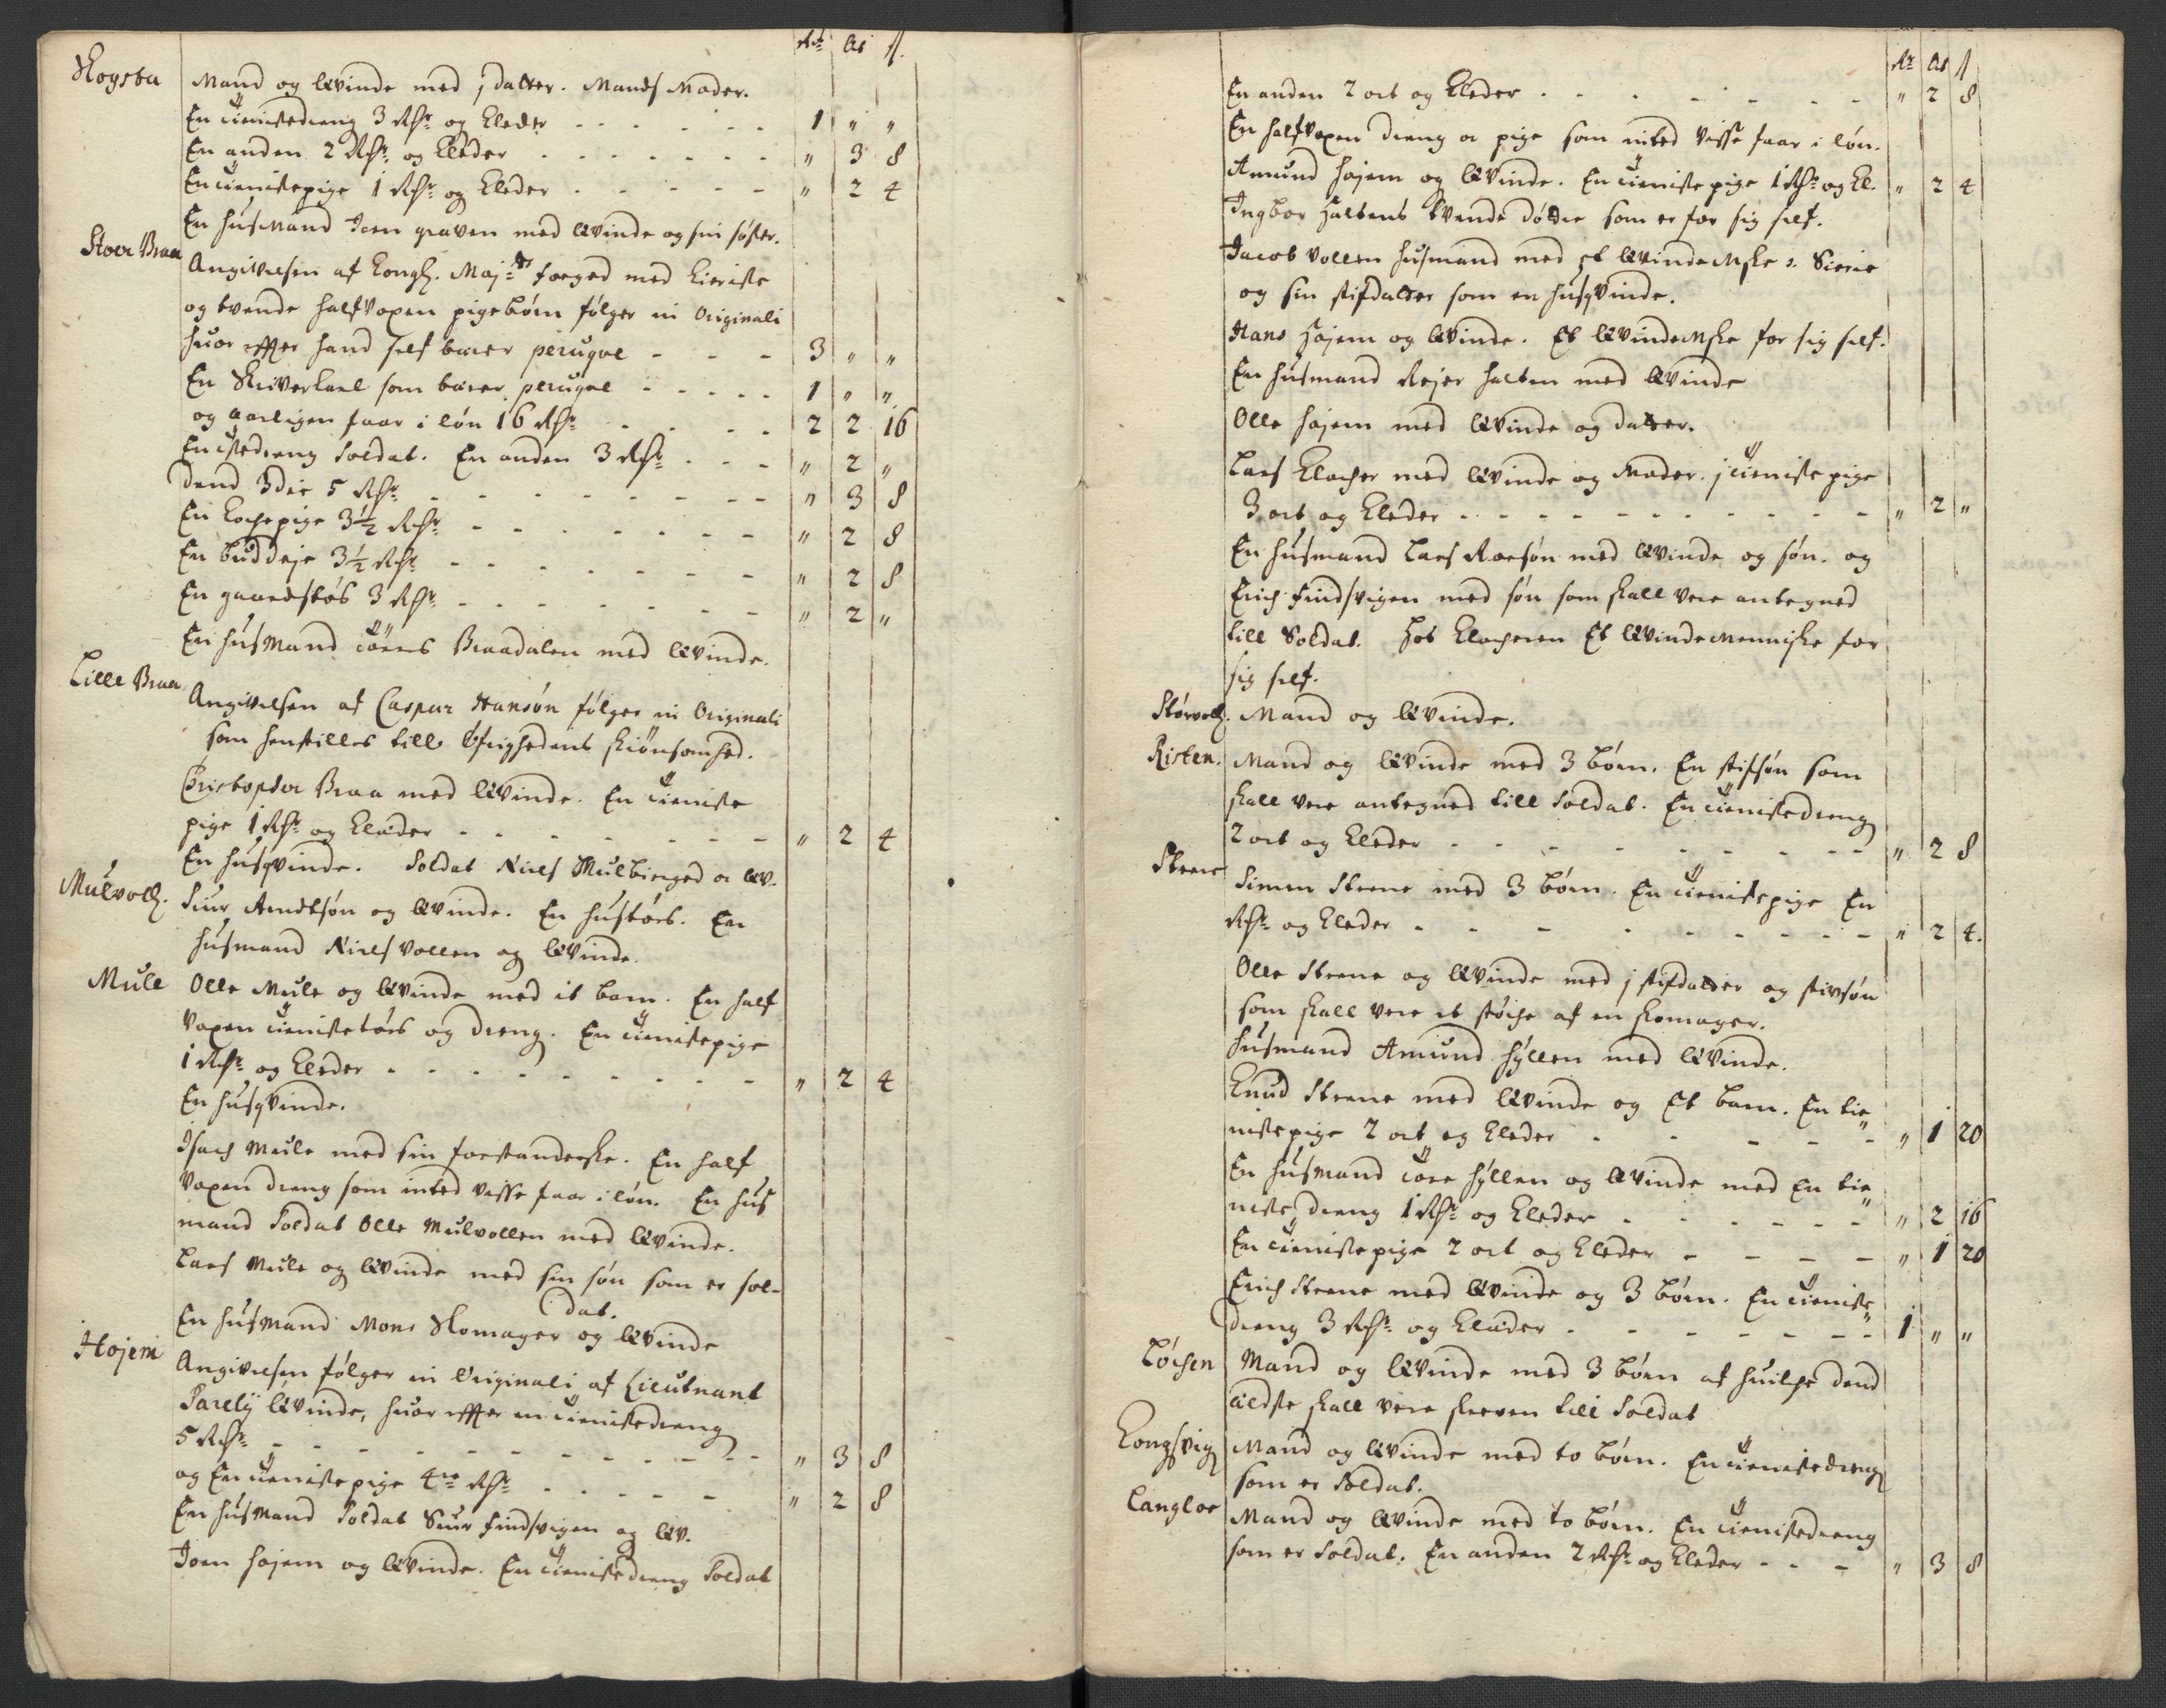 Rdr Ort ß.
Skogsta Mand og qvinde med j datter. Mands Moder.
En tienistedreng 3 Rdr og kleder - - - 1 " "
En anden 2 Rdr og kleder - - - " 3 8
En tienistepige 1 Rdr og kleder - - - " 2 4
En husmand Joen graven med qvinde og sin søster.
Stoer Braa Angivelsen af Kongl. Majts foeged med Kieriste
og tvende halfvoxen pigebørn følger in Originali
huor effter hand self bærer peruqve - - - 3 " "
En Skriverkarl som bærer peruqve - - - 1 " "
og aarligen faar i løn 16 Rdr - - - 2 2 16
En tiedreng Soldat. En anden 3 Rdr - - - " 2 "
dend 3die 5 Rdr - - - " 3 8
En kochepige 3½ Rdr - - - " 2 8
En buddeje 3½ Rdr - - - " 2 8
En gaardstøs 3 Rdr - - - " 2 "
En husmand Braadalen med qvinde.
Lille Braa Angivelsen af Caspar Hansøn følger in Originali
som henstilles till Øfrighedens skiønsomhed.
Christopher Braa med qvinde. En tieniste
pige 1 Rdr og klæder - - - " 2 4
En husqvinde. Soldat Niels Mulbierged oc qv.
Mulvoll. Siur Arndtsøn og qvinde. En hustøes. En
husmand Niels Vollen og qvinde.
Mule Olle Mule og qvinde med it barn. En half
voxen tienistetøes og dreng. En tienistepige
1 Rdr og kleder - - - " 2 4
En husqvinde.
Isach Mule med sin forstanderske. En half
voxen dreng som inted visse faar i løn. En hus
mand Soldat Olle Mulvollen med qvinde.
Lars Mule og qvinde med sin søn som er sol-
dat.
En husmand Mons Skomager og qvinde
Hojem Angivelsen følger in Originali af Lieutnant
Parelÿ qvinde, huor effter en tienistedreng
5 Rdr - - - " 3 8
og En tienistepige 4re Rdr - - - " 2 8
En husmand Soldat Siur Findsvigen og qv.
Joen Hojem og qvinde. En tienistedreng Soldat
Rr Ort ß
En anden 2 ort og kleder - - - " 2 8
En halfvoxen dreng oc pige som inted visse faar i løn.
Amund Hojem og qvinde. En tieniste pige 1 Rdr og kl. " 2 4
Ingbor Haltens tvende døttre som er for sig self.
Jacob Vollen husmand med et qvindemske s. Sirie
og sin stifdatter som en husqvinde.
Hans Hojem og qvinde. Et qvindemske for sig self.
En husmand Rejer Halten med qvinde
Olle Hojem med qvinde og datter.
Lars Klocher med qvinde og Moder. j tienistepige
3 ort og kleder - - - " 2 "
En husmand Lars Roersøn med qvinde og søn. og
Erich Findsvigen med søn som skall vere antegned
till Soldat. Hos Klocheren Et qvindemenniske for
sig self.
Størvoll. Mand og qvinde.
Risten. Mand og qvinde med 3 børn. En stifsøn som
skall vere antegned till Soldat. En tienistedreng
2 ort og kleder - - - " 2 8
Steene Simen Steene med 3 børn. En tienistepige En
Rdr og kleder - - - " 2 4.
Olle Steene og qvinde med j stifdatter og stivsøn
som skall vere et støche af en skomager.
Husmand Amund Hÿllen med qvinde.
Knud Steene med qvinde og Et barn. En tie
nistepige 2 ort og kleder - - - " 1 20
En husmand Tore Hÿllen og qvinde med En tie
niste dreng 1 Rdr og kleder - - - " 2 16
En tienistepige 2 ort og kleder - - - " 1 20
Erich Steene med qvinde og 3 børn. En tieniste
dreng 3 Rdr og klæder - - - 1 " "
Løchen Mand og qvinde med 3 børn af huilche dend
ældste skall vere skreven till Soldat
Kongsvig Mand og qvinde med to børn. En tienistedreng
som er Soldat.
Langloe Mand og qvinde med to børn. En tienistedreng
som er Soldat. En anden 2 Rdr og kleder - - - " 3 8